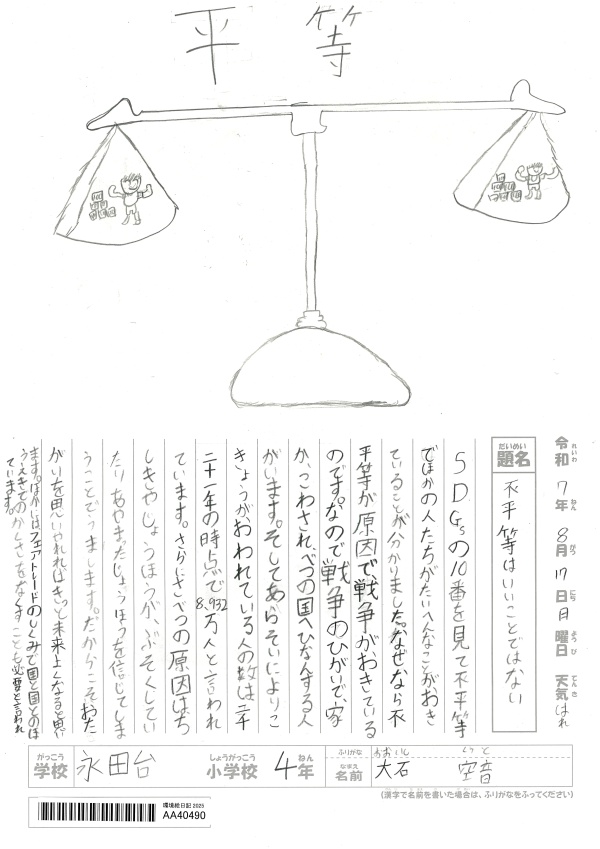 平等
令和7年8月17日日曜日 天気はれ
れいわ ねん がつ にち ようび てんき
だいめい
題名
不平等はいいことではない
SDGsの10番を見て不平等
でほかの人たちがたいへんなことがおき
ていることが分かりました。なぜなら不
平等が原因で戦争がおきている
のです。なので戦争のひがいで、家
か、こわされ、べつの国へひなんする人
がいます。そしてあらそいによりこ
きょうがおわれている人の数は二千
二十一年の時点で8,932万人と言われ
ています。さらにさべつの原因はち
しきやじょうほうが、ぶそくしてい
たりあやまったじょうほうを信じてしま
うことでうまします。だからこそおた
がいを思いやれればきっと未来よくなると思い
ます。ほかにはフェアトレードのしくみで国と国とのぼ
うえきでのかくさをなくすことも必要と言われ
ています。
がっこう
学校
永田台
しょうがっこう
小学校
4年
ねん
ふりがな
おおいし
なまえ
名前
大石 空音
(漢字で名前を書いた場合は、ふりがなをふってください)
環境絵日記 2025
AA40490